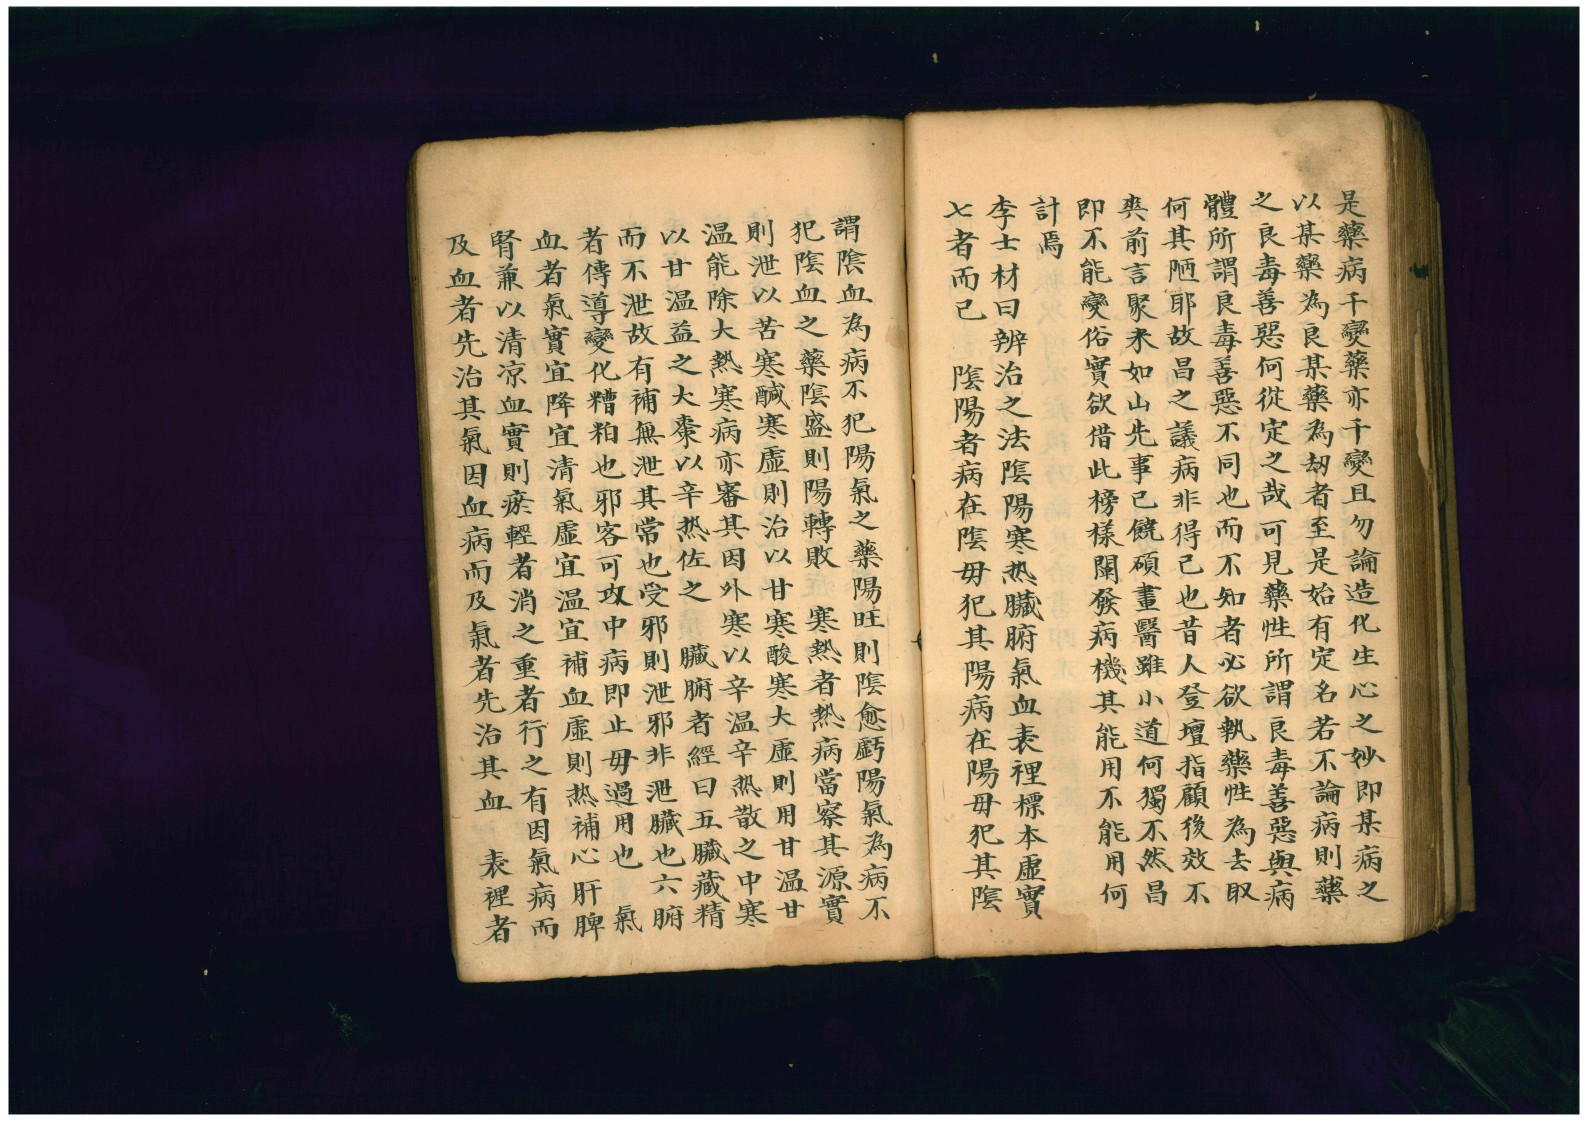 是藥病千變藥亦千變且勿論造化生心之妙即某病之
以某藥為良某藥為刼者至是始有定名若不論病則藥
之良毒善惡何從定之哉可見藥性所謂良毒善惡與病
體所謂良毒善惡不同也而不知者必欲執藥性為去取
何其陋耶故昌之議病非得已也昔人登壇指顧後效不
爽前言聚米如山先事已饒碩畫醫雖小道何獨不然昌
即不能變俗實欲借此榜樣闡發病機其能用不能用何
計焉
李士材曰辨治之法陰陽寒熱臟腑氣血表裡標本虛實
七者而已 陰陽者病在陰毋犯其陽病在陽毋犯其陰
謂陰血為病不犯陽氣之藥陽旺則陰愈虧陽氣為病不
犯陰血之藥陰盛則陽轉敗 寒熱者熱病當察其源實
則泄以苦寒鹹寒虛則治以甘寒酸寒大虛則用甘溫甘
溫能除大熱寒病亦審其因外寒以辛溫辛熱散之中寒
以甘溫益之大棗以辛熱佐之 臟腑者經曰五臟藏精
而不泄故有補無泄其常也受邪則泄邪非泄臟也六腑
者傳導變化糟粕也邪客可攻中病即止毋過用也 氣
血者氣實宜降宜清氣虛宜溫宜補血虛則熱補心肝脾
腎兼以清凉血實則瘀輕者消之重者行之有因氣病而
及血者先治其氣因血病而及氣者先治其血 表裡者